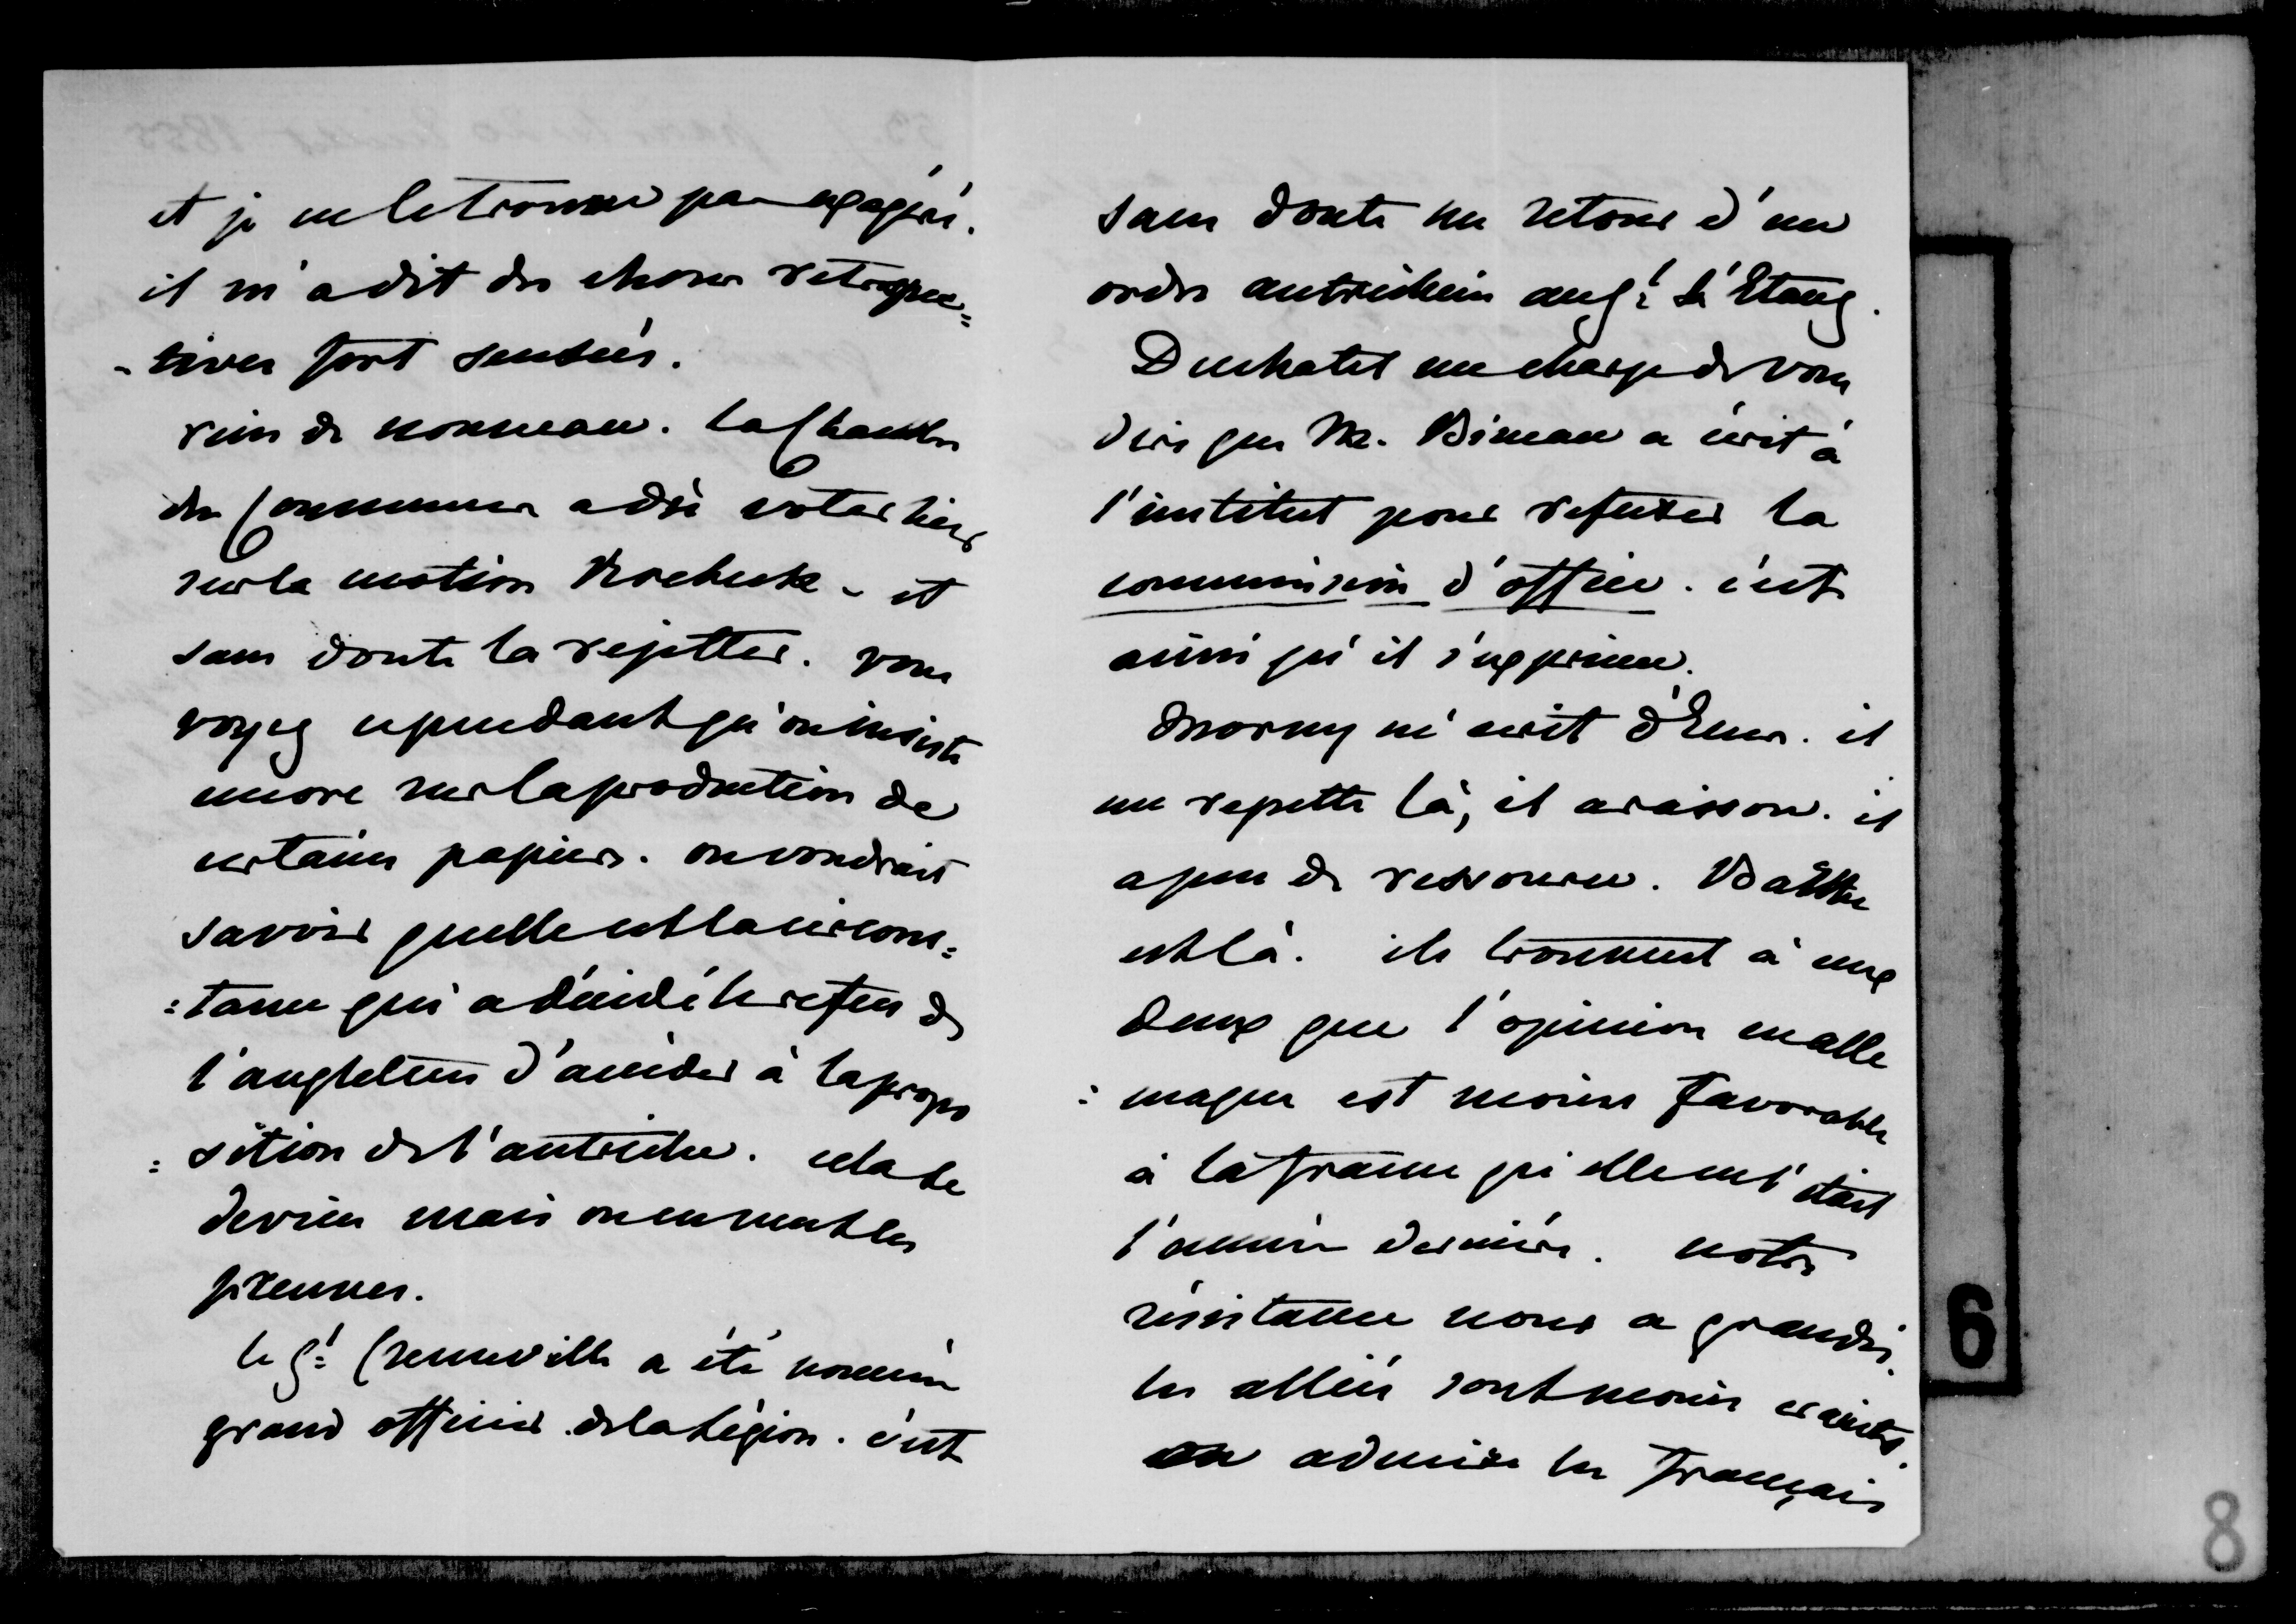 et je ne le trouve pas exagéré.
il m'a dit des choses retrospec=
-tives fort sensées.
rien de nouveau. la Chambre
des Communes a dû voter hier
sur la motion Roebuck - et
sans doute la rejetter. vous
voyez cependant qu'on insiste
encore sur la production de
certains papiers. on voudrait
savoir quelle est la circons=
=tance qui a décidé le refus de
l'angleterre d'accéder à la propo
=sition de l'autriche. cela se
devine mais on en veut les
preuves.
le gal Crenneville a été nommé
grand officier de la Légion. c'est
sans doute un retour d'un
ordre autrichien au gal de l'Etang.
Duchatel me charge de vous
dire que M. Bineau a écrit à
l'institut pour refuser la
commission d'office. c'est
ainsi qu'il s'exprime.
Morny m'écrit d'Ems. il
me regrette là, il a raison. il
a peu de ressource.
est là. ils trouvent à eux
deux que l'opinion en alle
=magne est moins favorable
à la france qu'elle ne l'était
l'année dernière. notre
résistance nous a grandi.
les alliés sont moins craints.
on admire les français
6
8